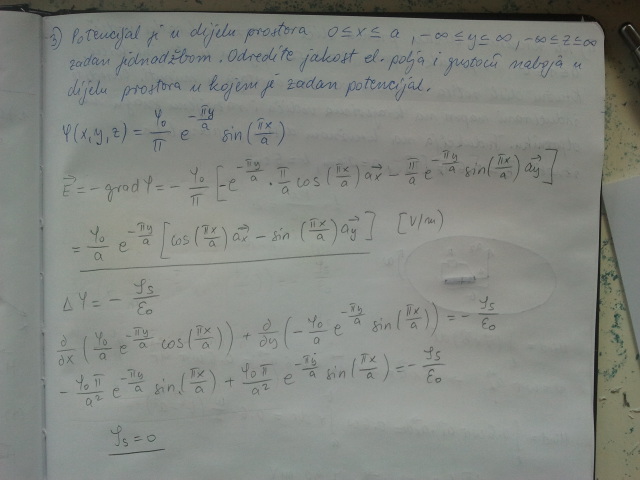 3) Potencijal je u dijelu prostora 0 ≤ x ≤ a, -∞ ≤ y ≤ ∞, -∞ ≤ z ≤ ∞
zadan jednadžbom. Odredite jakost el. polja i gustoću naboja u
dijelu prostora u kojem je zadan potencijal.
φ(x,y,z) = φ₀/π e^(-πy/a) sin(πx/a)
E⃗ = -grad φ = -φ₀/π [-e^(-πy/a) · π/a cos(πx/a) a⃗x - π/a e^(-πy/a) sin(πx/a) a⃗y]
= φ₀/a e^(-πy/a) [cos(πx/a) a⃗x - sin(πx/a) a⃗y] [V/m)
Δφ = - ρs/ε₀
∂/∂x (φ₀/a e^(-πy/a) cos(πx/a)) + ∂/∂y (-φ₀/a e^(-πy/a) sin(πx/a)) = - ρs/ε₀
- φ₀π/a² e^(-πy/a) sin(πx/a) + φ₀π/a² e^(-πy/a) sin(πx/a) = - ρs/ε₀
ρs = 0